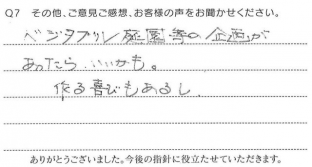 Q7 その他、ご意見ご感想、お客様の声をお聞かせください。
ベジタブリン 菜園等の企画が
あったら いいかも。
作る喜びもあるし
ありがとうございました。今後の指針に役立たせていただきます。